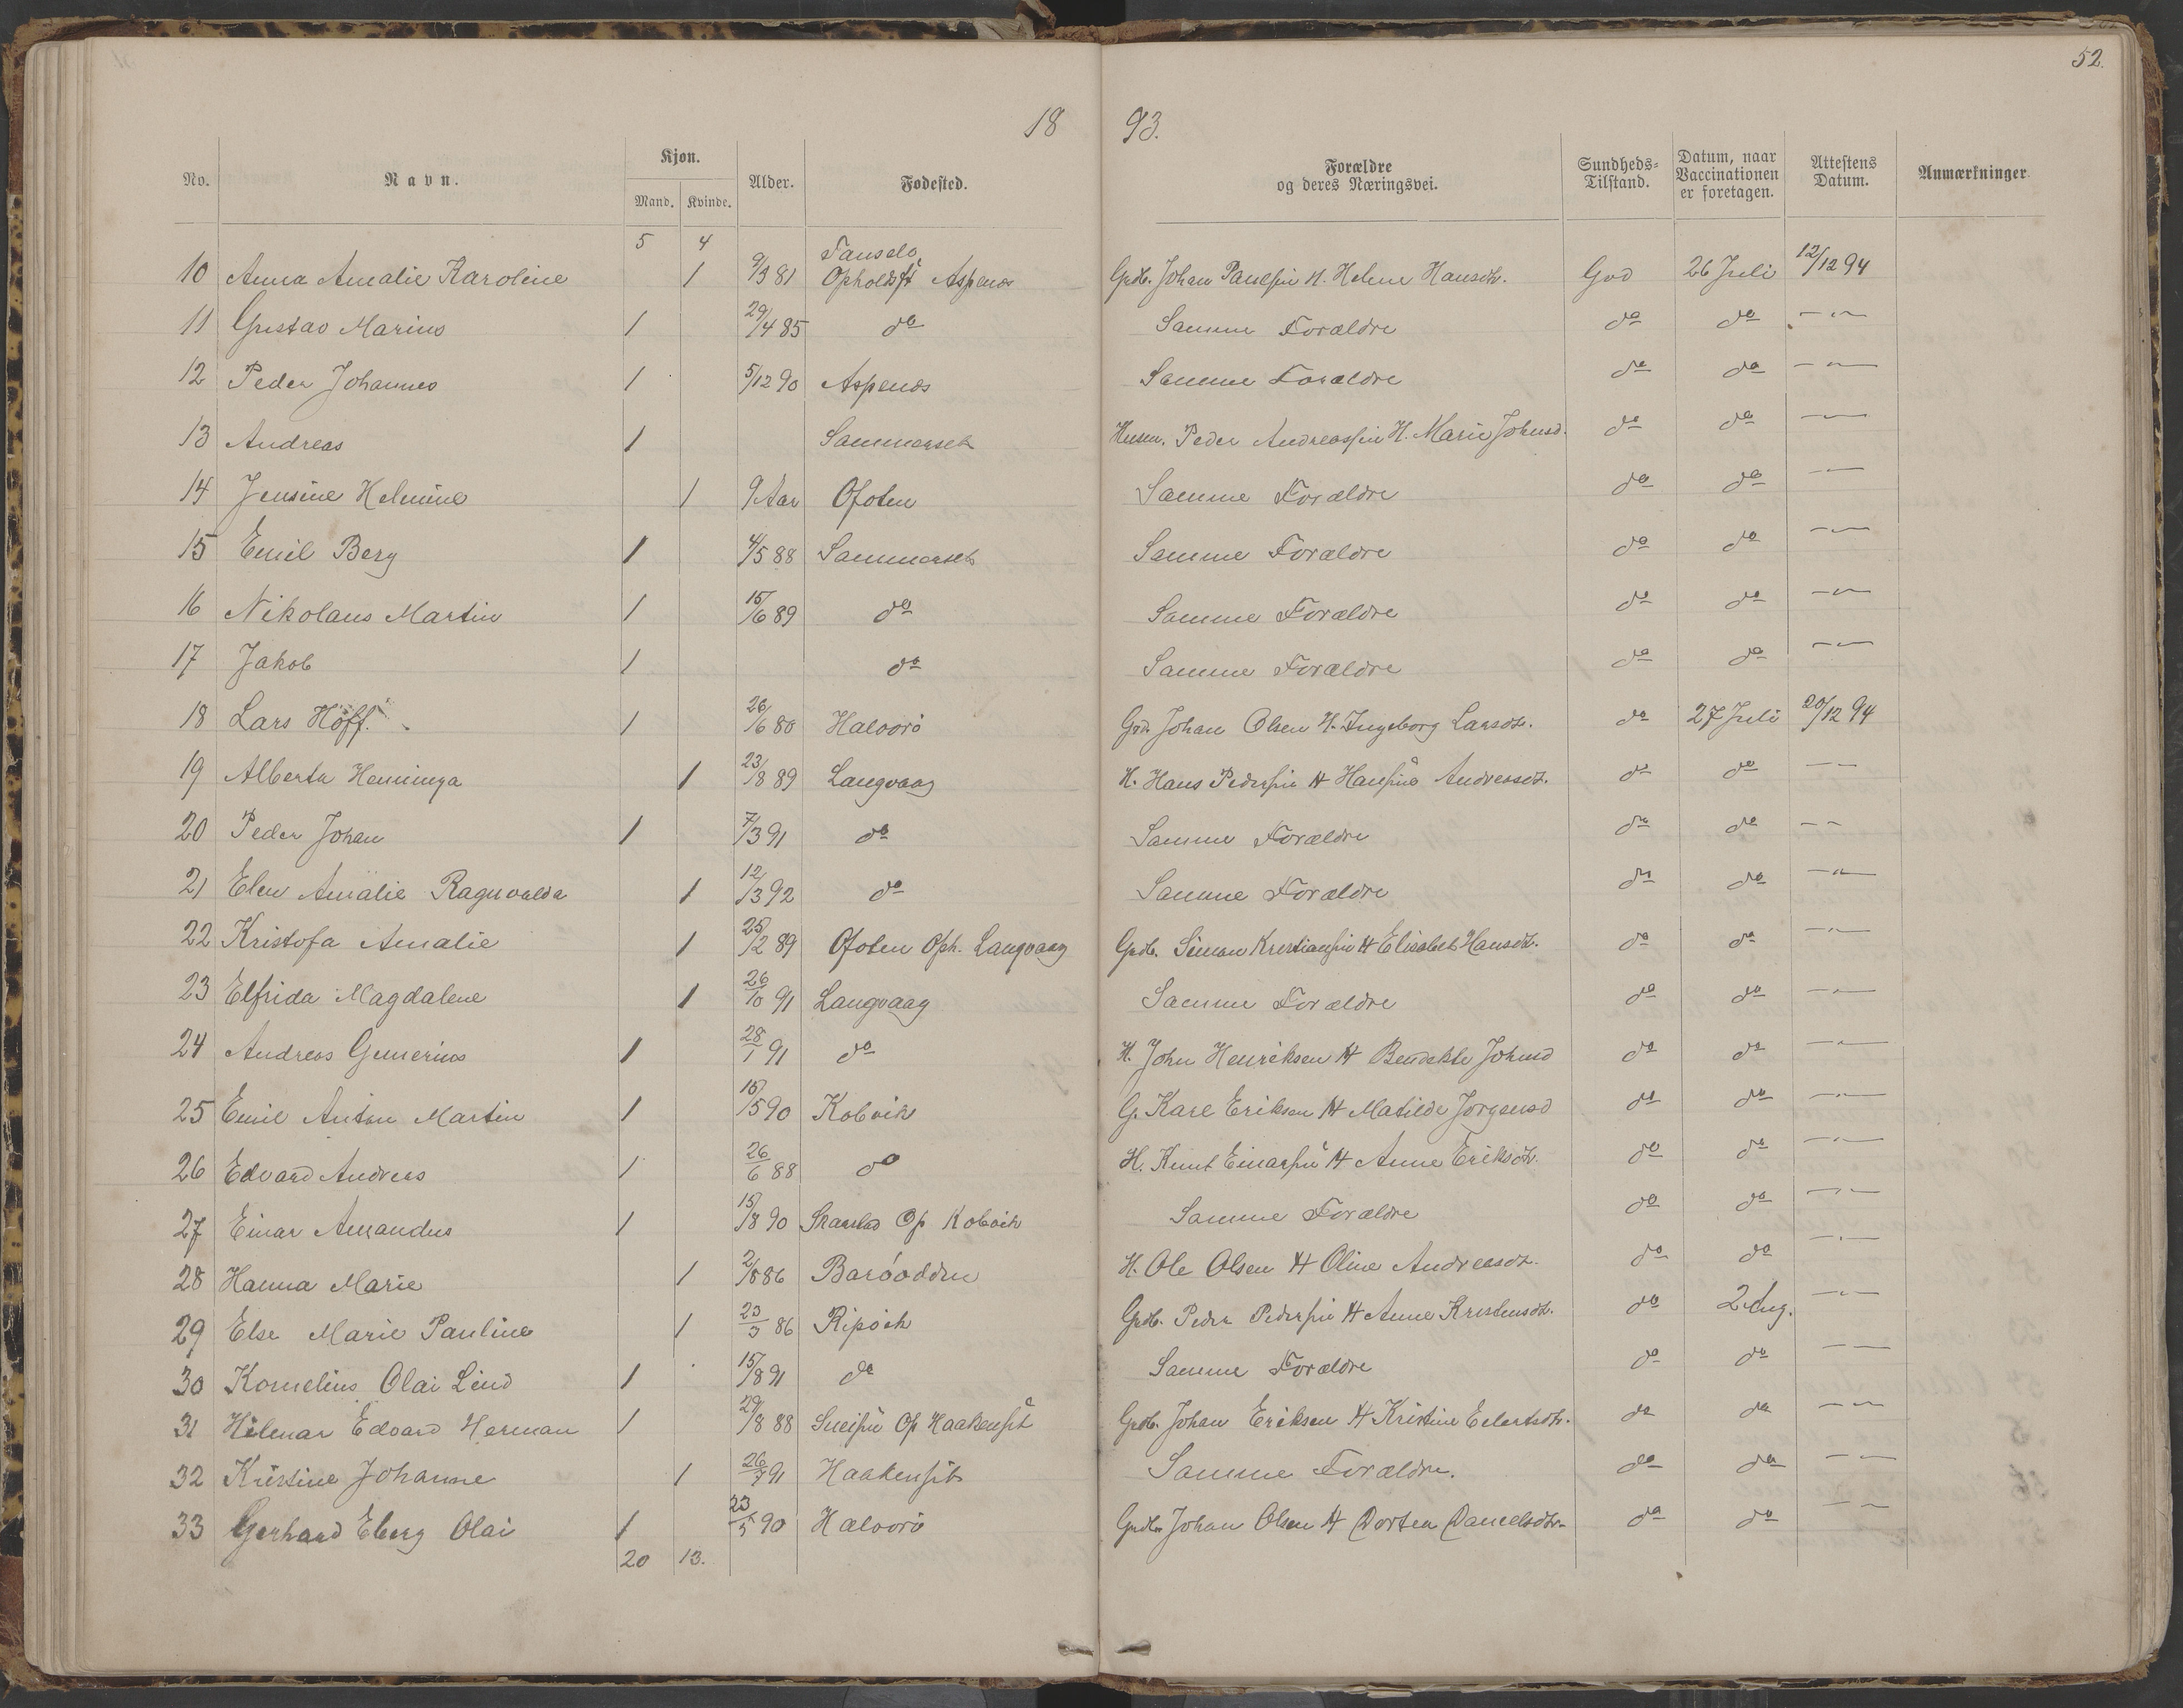 52.
18 93.
No. Navn. Kjøn. Alder. Fødested. Forældre og deres Næringsvei. Sundheds-Tilstand. Datum, naar Vaccinationen er foretagen. Attestens Datum. Anmærkninger
Mand. Kvinde.
5 4
10 Anna Amalie Karoline 1 9/3 81 Opholdst Aspenes Grdb. Johan Paulsen H. Helene Hansdtr. God 26 Juli 12/12 94
11 Gustav Marius 1 29/4 85 do Samme Forældre do do — " —
12 Peder Johannes 1 5/12 90 Aspenes Samme Forældre do do — " —
13 Andreas 1 Sommerset Husm. Peder Andreassen H. Marie Johnsd. do do — " —
14 Jensine Helmine 1 9 Aar Ofoten Samme Forældre do do — " —
15 Emil Berg 1 4/5 88 Sommerset Samme Forældre do do — " —
16 Nikolaus Martin 1 15/6 89 do Samme Forældre do do — " —
17 Jakob 1 do Samme Forældre do do — " —
18 Lars Höff. 1 26/6 80 Halvorö Grd. Johan Olsen H. Ingeborg Larsdtr. do 27 Juli 20/12 94
19 Alberta Heminga 1 23/8 89 Langvaag H. Hans Pedersen H Hansine Andreasdt. do do — —
20 Peder Johan 1 7/3 91 do Samme Forældre do do — —
21 Elen Amalie Ragnvalda 1 12/3 92 do Samme Forældre do do — " —
22 Kristofa Amalie 1 25/2 89 Ofoten Oph. Langvaag Grdb. Simon Kristiansen H Elisabet Hansdt. do do — " —
23 Elfrida Magdalene 1 26/10 91 Langvaag Samme Forældre do do — " —
24 Andreas Gunerius 1 28/1 91 do H. John Henriksen H Bendekte Johnsd do do — " —
25 Emil Anton Martin 1 15/5 90 Kobvik G. Karl Eriksen H Matilde Jorgensd do do — " —
26 Edvard Andreas 1 26/6 88 do H. Knut Einarsen H Anne Eriksdt. do do — " —
27 Einar Amandus 1 15/8 90 Skarstad Op Kobvik Samme Forældre do do — " —
28 Hanna Marie 1 2/8 86 Baröodden H. Ole Olsen H Oline Andreasdt. do do — " —
29 Else Marie Pauline 1 23/3 86 Ripvik Grdb. Peder Pedersen H Anne Kristensdt. do 2 Aug. — " —
30 Kornelius Olai Lind 1 15/8 91 do Samme Forældre do do — —
31 Hilmar Edvard Herman 1 29/8 88 Op Haakensst Grdb. Johan Eriksen H Kristine Eilertsdtr. do do — " —
32 Kristine Johanne 1 26/7 91 Haakenset Samme Forældre. do do — " —
33 Gerhard Eberg Olai 1 23/5 90 Halvorö Grdbr Johan Olsen H Dortea Danielsdtr. do do — " —
20 13.